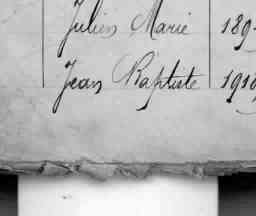 Julien Marie 189
Jean Baptiste 191